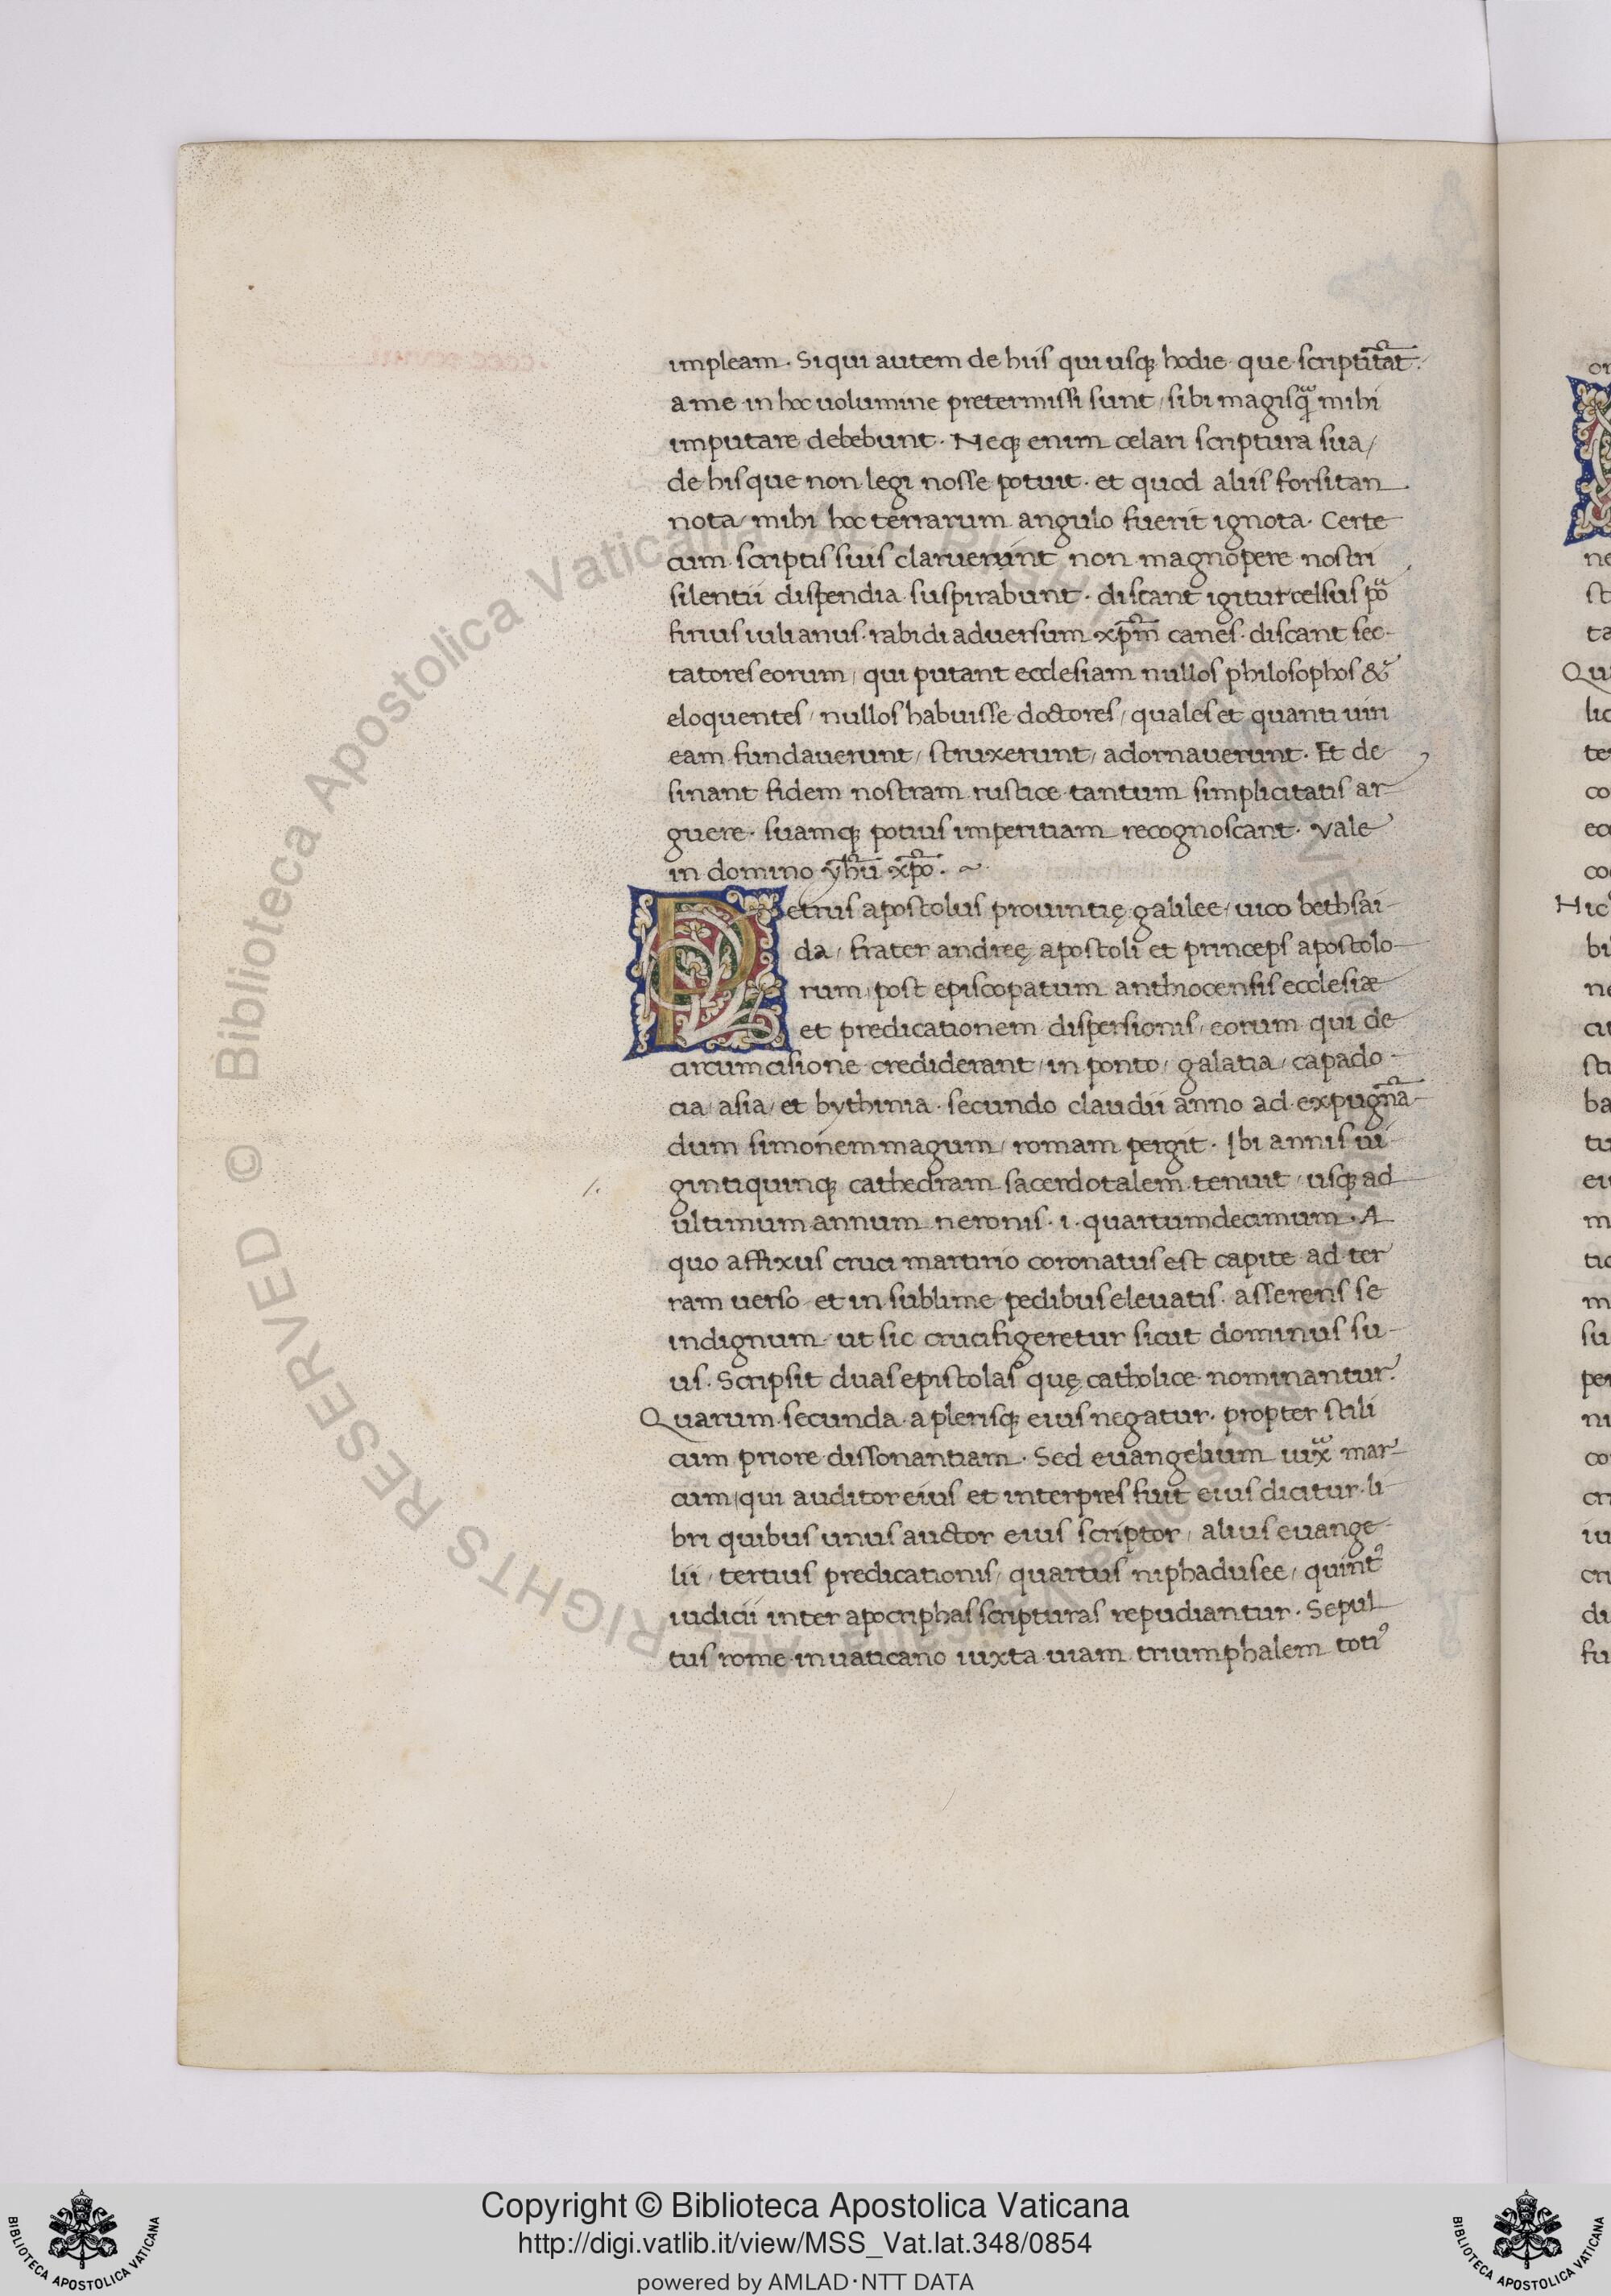 impleam. Siqui autem de hiis qui usq; hodie que scriptitãt.
a me in hoc uolumine pretermissi sunt, sibi magisq̃ mihi
imputare debebunt. Neq; enim celari scriptura sua,
de his que non legi nosse potuit. et quod aliis forsitan
nota, mihi hoc terrarum angulo fuerit ignota. Certe
cum scriptis suis claruerint non magnopere nostri
silentii dispendia suspirabunt. discant igitur celsus
firius iulianus. rabidi aduersum xp̃m canes. discant sec-
tatores eorum, qui putant ecclesiam nullos philosophos &
eloquentes, nullos habuisse doctores, quales et quanti uiri
eam fundauerunt, struxerunt, adornauerunt. Et de
sinant fidem nostram rustice tantum simplicitatis ar
guere. suamq; potius imperitiam recognoscant. Vale
in domino yhũ xp̃o. ~
Petrus apostolus prouintię galilee, uico bethsai-
da, frater andreę apostoli et princeps apostolo-
rum, post episcopatum anthiocensis ecclesiæ
et predicationem dispersionis, eorum qui de
circumcisione crediderant, in ponto, galatia, capado-
cia, asia, et bythinia. secundo claudii anno ad expugnã-
dum simonem magum, romam pergit. Ibi annis ui-
gintiquinq; cathedram sacerdotalem tenuit, usq; ad
ultimum annum neronis. i. quartumdecimum. A
quo affixus cruci martirio coronatus est capite ad ter
ram uerso et in sublime pedibus eleuatis. asserens se
indignum, ut sic crucifigeretur sicut dominus su-
us. Scripsit duas epistolas quę catholice nominantur.
Quarum secunda a plerisq; eius negatur. propter stili
cum priore dissonantiam. Sed euangelium iux̃ mar-
cum, qui auditor eius et interpres fuit eius dicitur. li-
bri quibus unus auctor eius scriptor, alius euange-
lii, tertius predicationis, quartus niphadusee, quintꝰ
iudicii inter apocriphas scripturas repudiantur. Sepul
tus rome in uaticano iuxta uiam triumphalem totiꝰ
© Biblioteca Apostolica Vaticana ALL RIGHTS RESERVED
Copyright © Biblioteca Apostolica Vaticana
http://digi.vatlib.it/view/MSS_Vat.lat.348/0854
powered by AMLAD·NTT DATA
BIBLIOTECA APOSTOLICA VATICANA
BIBLIOTECA APOSTOLICA VATICANA